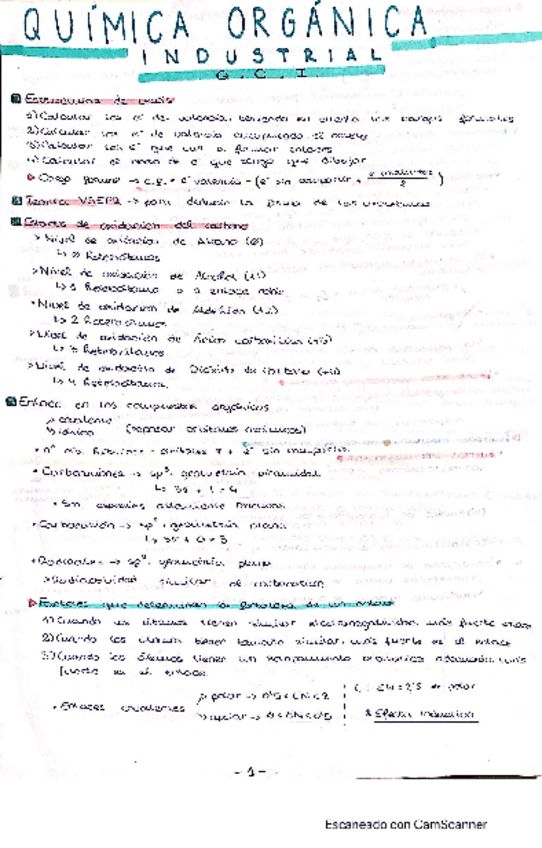 QUÍMICA ORGÁNICA
INDUSTRIAL
Q.C.I.
Estructuras de Lewis
1) Calcular los e⁻ de valencia, teniendo en cuenta las cargas formales
2) Calcular los e⁻ de valencia
3) Calcular los e⁻ que van a formar enlaces
4) Calcular el resto de e⁻ que tengo que dibujar
Carga formal → c.f. = e⁻ valencia - (e⁻ sin compartir +
Teoría VSEPR → para definir la forma de las
Estados de oxidación del carbono
> Nivel de oxidación de Alcano (0)
↳ 0 Heteroátomos
> Nivel de oxidación de Alcohol (+1)
↳ 1 Heteroátomo o 1 enlace
• Nivel de oxidación de Aldehído (+2)
↳ 2 Heteroátomos
> Nivel de oxidación de Ácido carboxílico (+3)
↳ 3 Heteroátomos
> Nivel de oxidación de Dióxido de carbono (+4)
↳ 4 Heteroátomos
Enlace en los compuestos orgánicos
covalente
iónico
• Carbaniones → sp³, geometría piramidal
↳ 3σ + 1 = 4
• Son especies altamente
• Carbocatión → sp², geometría plana
↳ 3σ + 0 = 3
• Radicales → sp², geometría plana
> Reactividad similar al carbocatión
Factores que determinan la fortaleza de un enlace
1) Cuando los átomos tienen similar electronegatividad, más fuerte
2) Cuando los átomos tienen tamaño similar, más fuerte es el enlace
3) Cuando los átomos tienen un
fuerte es el enlace
• Enlaces covalentes
polar → 0'5 < EN < 2
apolar → 0 < EN < 0'5
Efecto inductivo
- 1 -
Escaneado con CamScanner